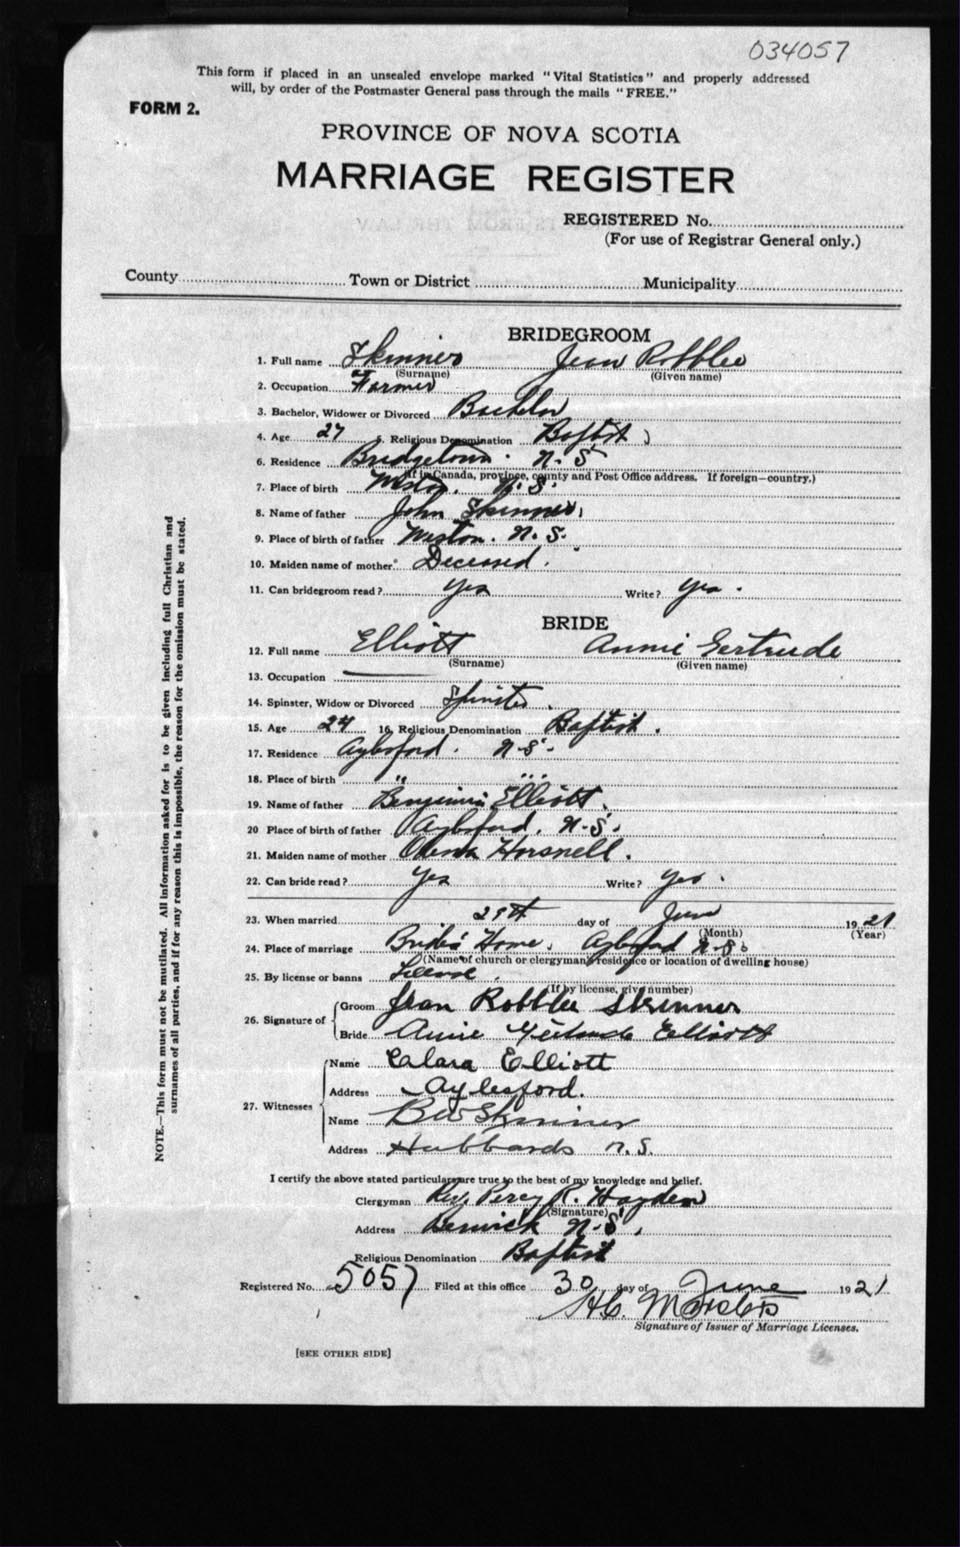 034057
This form if placed in an unsealed envelope marked "Vital Statistics" and properly addressed
will, by order of the Postmaster General pass through the mails "FREE."
FORM 2.
PROVINCE OF NOVA SCOTIA
MARRIAGE REGISTER
REGISTERED No.
(For use of Registrar General only.)
County Town or District Municipality
BRIDEGROOM
1. Full name Skinner Jean Robblee
(Surname) (Given name)
2. Occupation Farmer
3. Bachelor, Widower or Divorced Bachelor
4. Age 27 5. Religious Denomination Baptist
6. Residence Bridgetown. N-S
(If in Canada, province, county and Post Office address. If foreign—country.)
7. Place of birth Weston. N.S.
8. Name of father John Skinner
9. Place of birth of father Weston. N.S.
10. Maiden name of mother Deceased.
11. Can bridegroom read? Yes Write? Yes.
BRIDE
12. Full name Elliott Annie Gertrude
(Surname) (Given name)
13. Occupation
14. Spinster, Widow or Divorced Spinster.
15. Age 24 16. Religious Denomination Baptist.
17. Residence Aylesford. N-S-
18. Place of birth " "
19. Name of father Benjamin Elliott.
20 Place of birth of father Aylesford. N-S.
21. Maiden name of mother Horsnell.
22. Can bride read? Yes Write? Yes.
23. When married 29th day of June 1921
(Month) (Year)
24. Place of marriage Bride's Home. Aylesford N-S.
(Name of church or clergyman's residence or location of dwelling house)
25. By license or banns License.
(If by license, give number)
26. Signature of Groom Jean Robblee Skinner
Bride Annie Gertrude Elliott
27. Witnesses Name Clara Elliott
Address Aylesford.
Name Skinner
Address Hubbards N.S.
I certify the above stated particulars are true to the best of my knowledge and belief.
Clergyman Rev. Percy R. Hayden
(Signature)
Address Berwick N-S.
Religious Denomination Baptist
Registered No. 5057 Filed at this office 30 day of June 1921
H.C.
Signature of Issuer of Marriage Licenses.
[SEE OTHER SIDE]
NOTE.—This form must not be mutilated. All information asked for is to be given including full Christian and
surnames of all parties, and if for any reason this is impossible, the reason for the omission must be stated.